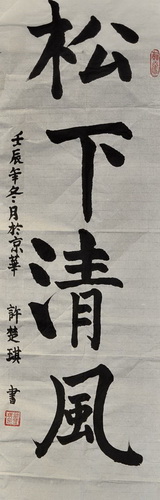 松下清風
壬辰年冬月於京華 許楚琪 書